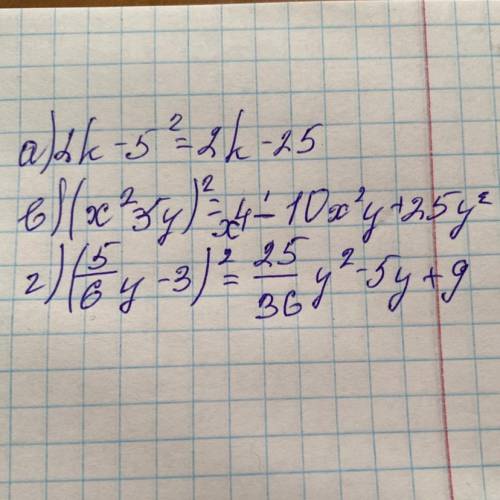 а) 2k - 5² = 2k - 25
в) (x² 5y)² = x⁴ - 10x²y + 25y²
г) (5/6 y - 3)² = 25/36 y² - 5y + 9